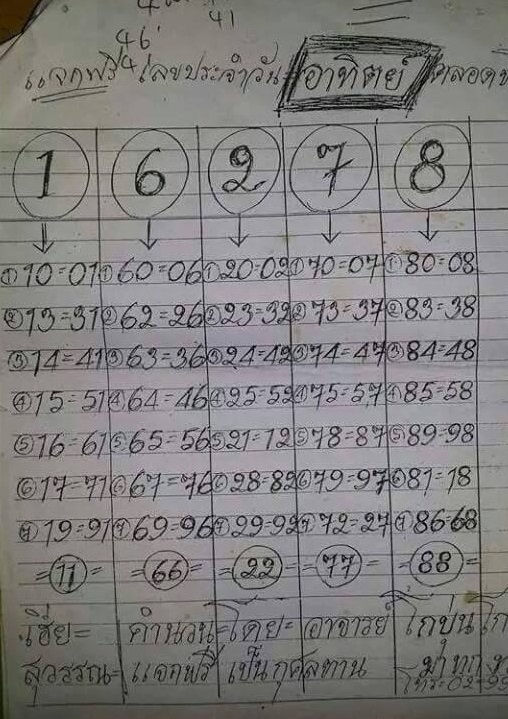 41
46
แจกฟรี เลขประจำวัน อาทิตย์
1 6 2 7 8
①10=01 ①60=06 ①20=02 ①70=07 ①80=08
②13=31 ②62=26 ②23=32 ②73=37 ②83=38
③14=41 ③63=36 ③24=42 ③74=47 ③84=48
④15=51 ④64=46 ④25=52 ④75=57 ④85=58
⑤16=61 ⑤65=56 ⑤21=12 ⑤78=87 ⑤89=98
⑥17=71 ⑥67=76 ⑥28=82 ⑥79=97 ⑥81=18
⑦19=91 ⑦69=96 ⑦29=92 ⑦72=27 ⑦86-68
=11= =66= =22= =77= =88=
คำนวน=โดย= อาจารย์
แจกฟรี เป็น กุศลทาน